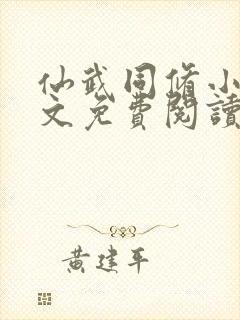 仙武同脩小
文免費閱讀
黃建平